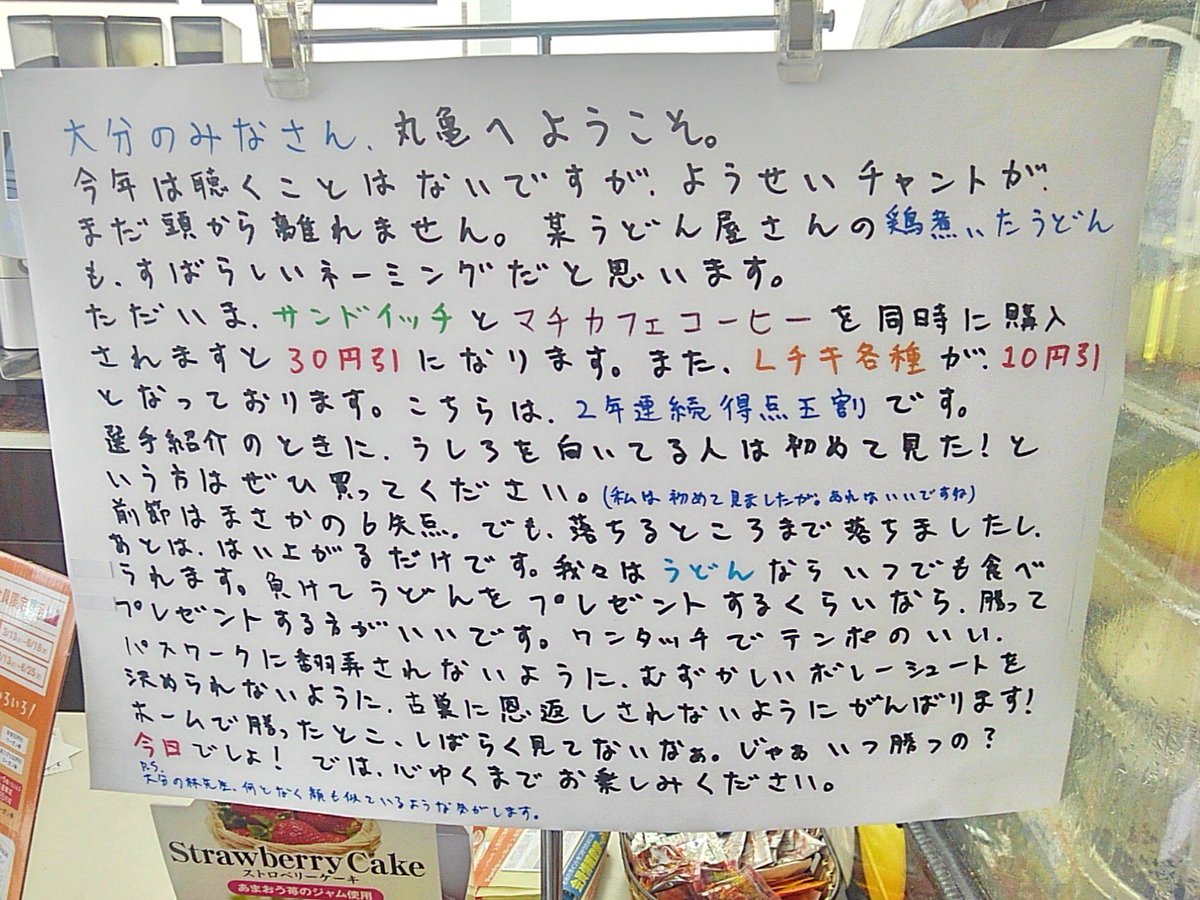 大分のみなさん、丸亀へようこそ。
今年は聴くことはないですが、ようせいチャントが、
まだ頭から離れません。某うどん屋さんの鶏煮いたうどん
も、すばらしいネーミングだと思います。
ただいま、サンドイッチとマチカフェコーヒーを同時に購入
されますと30円引になります。また、Lチキ各種が、10円引
となっております。こちらは、2年連続得点王割です。
選手紹介のときに、うしろを向いてる人は初めて見た!と
いう方はぜひ買ってください。(私は初めて見ましたが。あれはいいですね)
前節はまさかの6失点。でも、落ちるところまで落ちましたし、
あとは、はい上がるだけです。我々はうどんならいつでも食べ
られます。負けてうどんをプレゼントするくらいなら、勝って
プレゼントする方がいいです。ワンタッチでテンポのいい、
パスワークに翻弄されないように、むずかしいボレーシュートを
決められないように、古巣に恩返しされないようにがんばります!
ホームで勝ったとこ、しばらく見てないなぁ。じゃぁいつ勝つの?
今日でしょ!では、心ゆくまでお楽しみください。
P.S.
大分の林先生、何となく顔も似ているような気がします。
Strawberry Cake
ストロベリーケーキ
あまおう苺のジャム使用